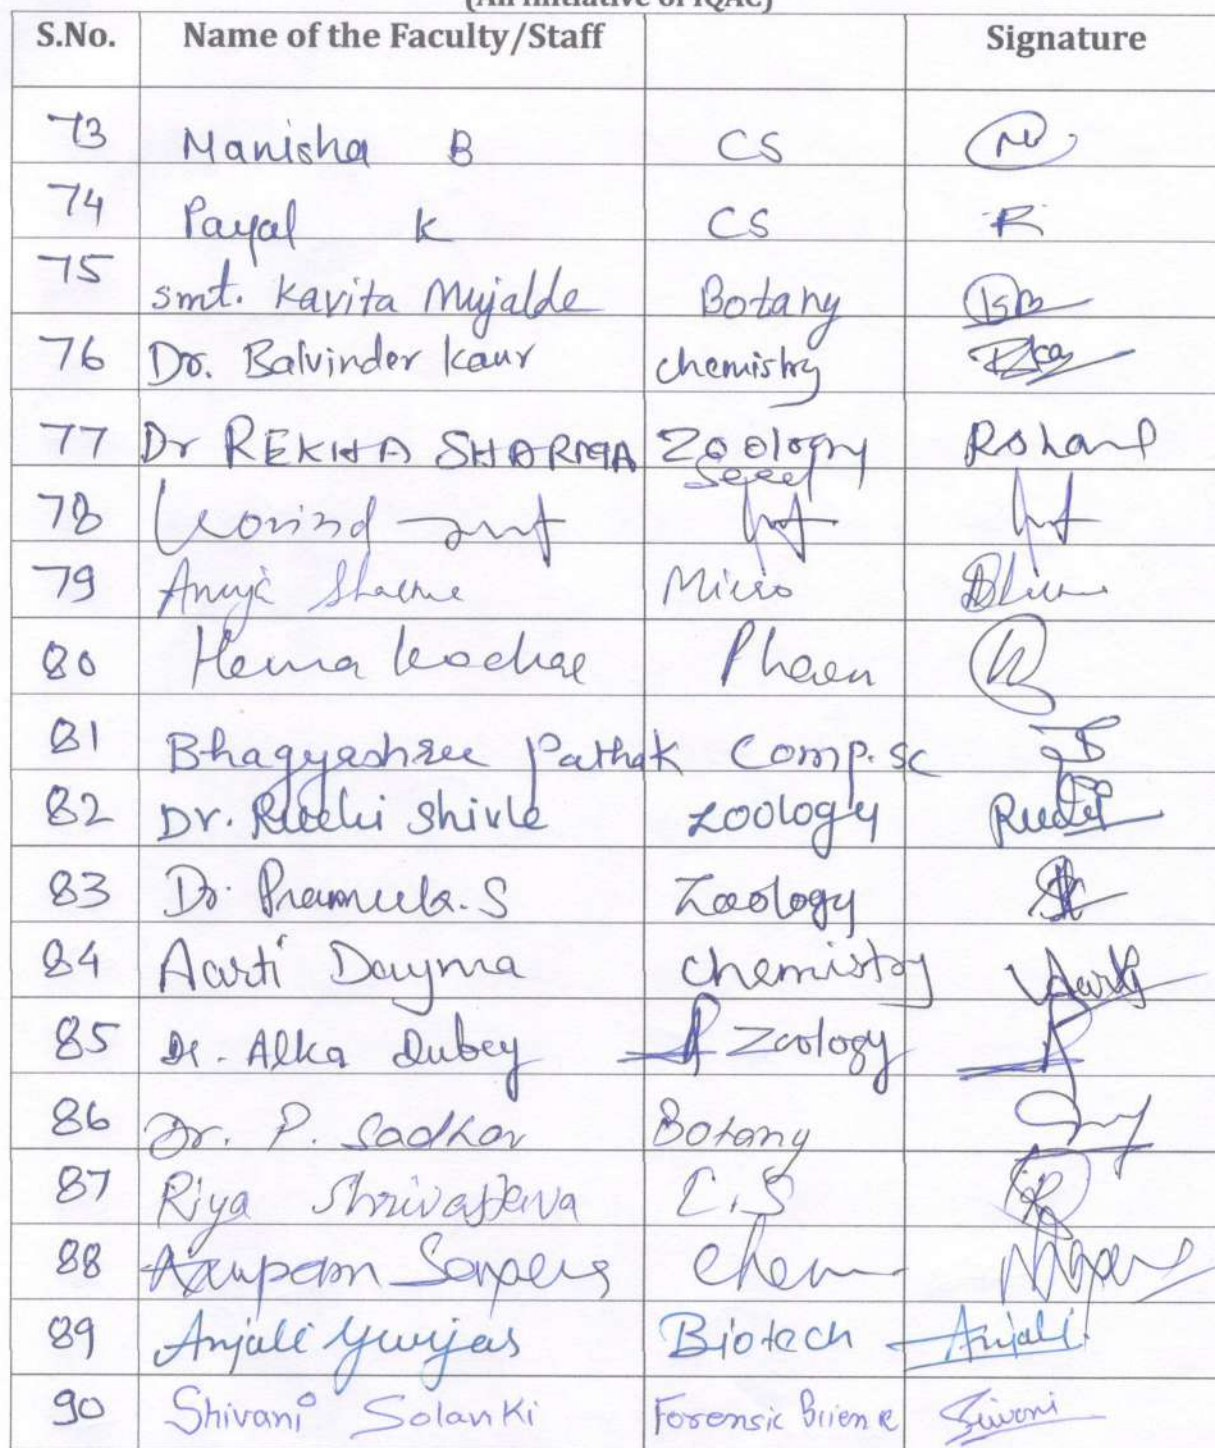 (An Initiative of IQAC)
S.No. Name of the Faculty/Staff Signature
73 Manisha B CS
74 Payal K CS
75 smt. Kavita Mujalde Botany
76 Dr. Balvinder Kaur chemistry
77 Dr REKHA SHARMA Zoology
78
79 Anuja Sharma Micro
80 Hema
81 Bhagyashree Pathak Comp.sc
82 Dr. Ruchi Shivle Zoology
83 Dr. Prameela.S Zoology
84 Aarti Dayma chemistry Aarti
85 Dr. Alka Dubey Zoology
86 Dr. P. Sadhav Botany
87 Riya Shrivastava C.S
88 Anupam Chem
89 Anjali Biotech Anjali
90 Shivani Solanki Forensic Science Shivani